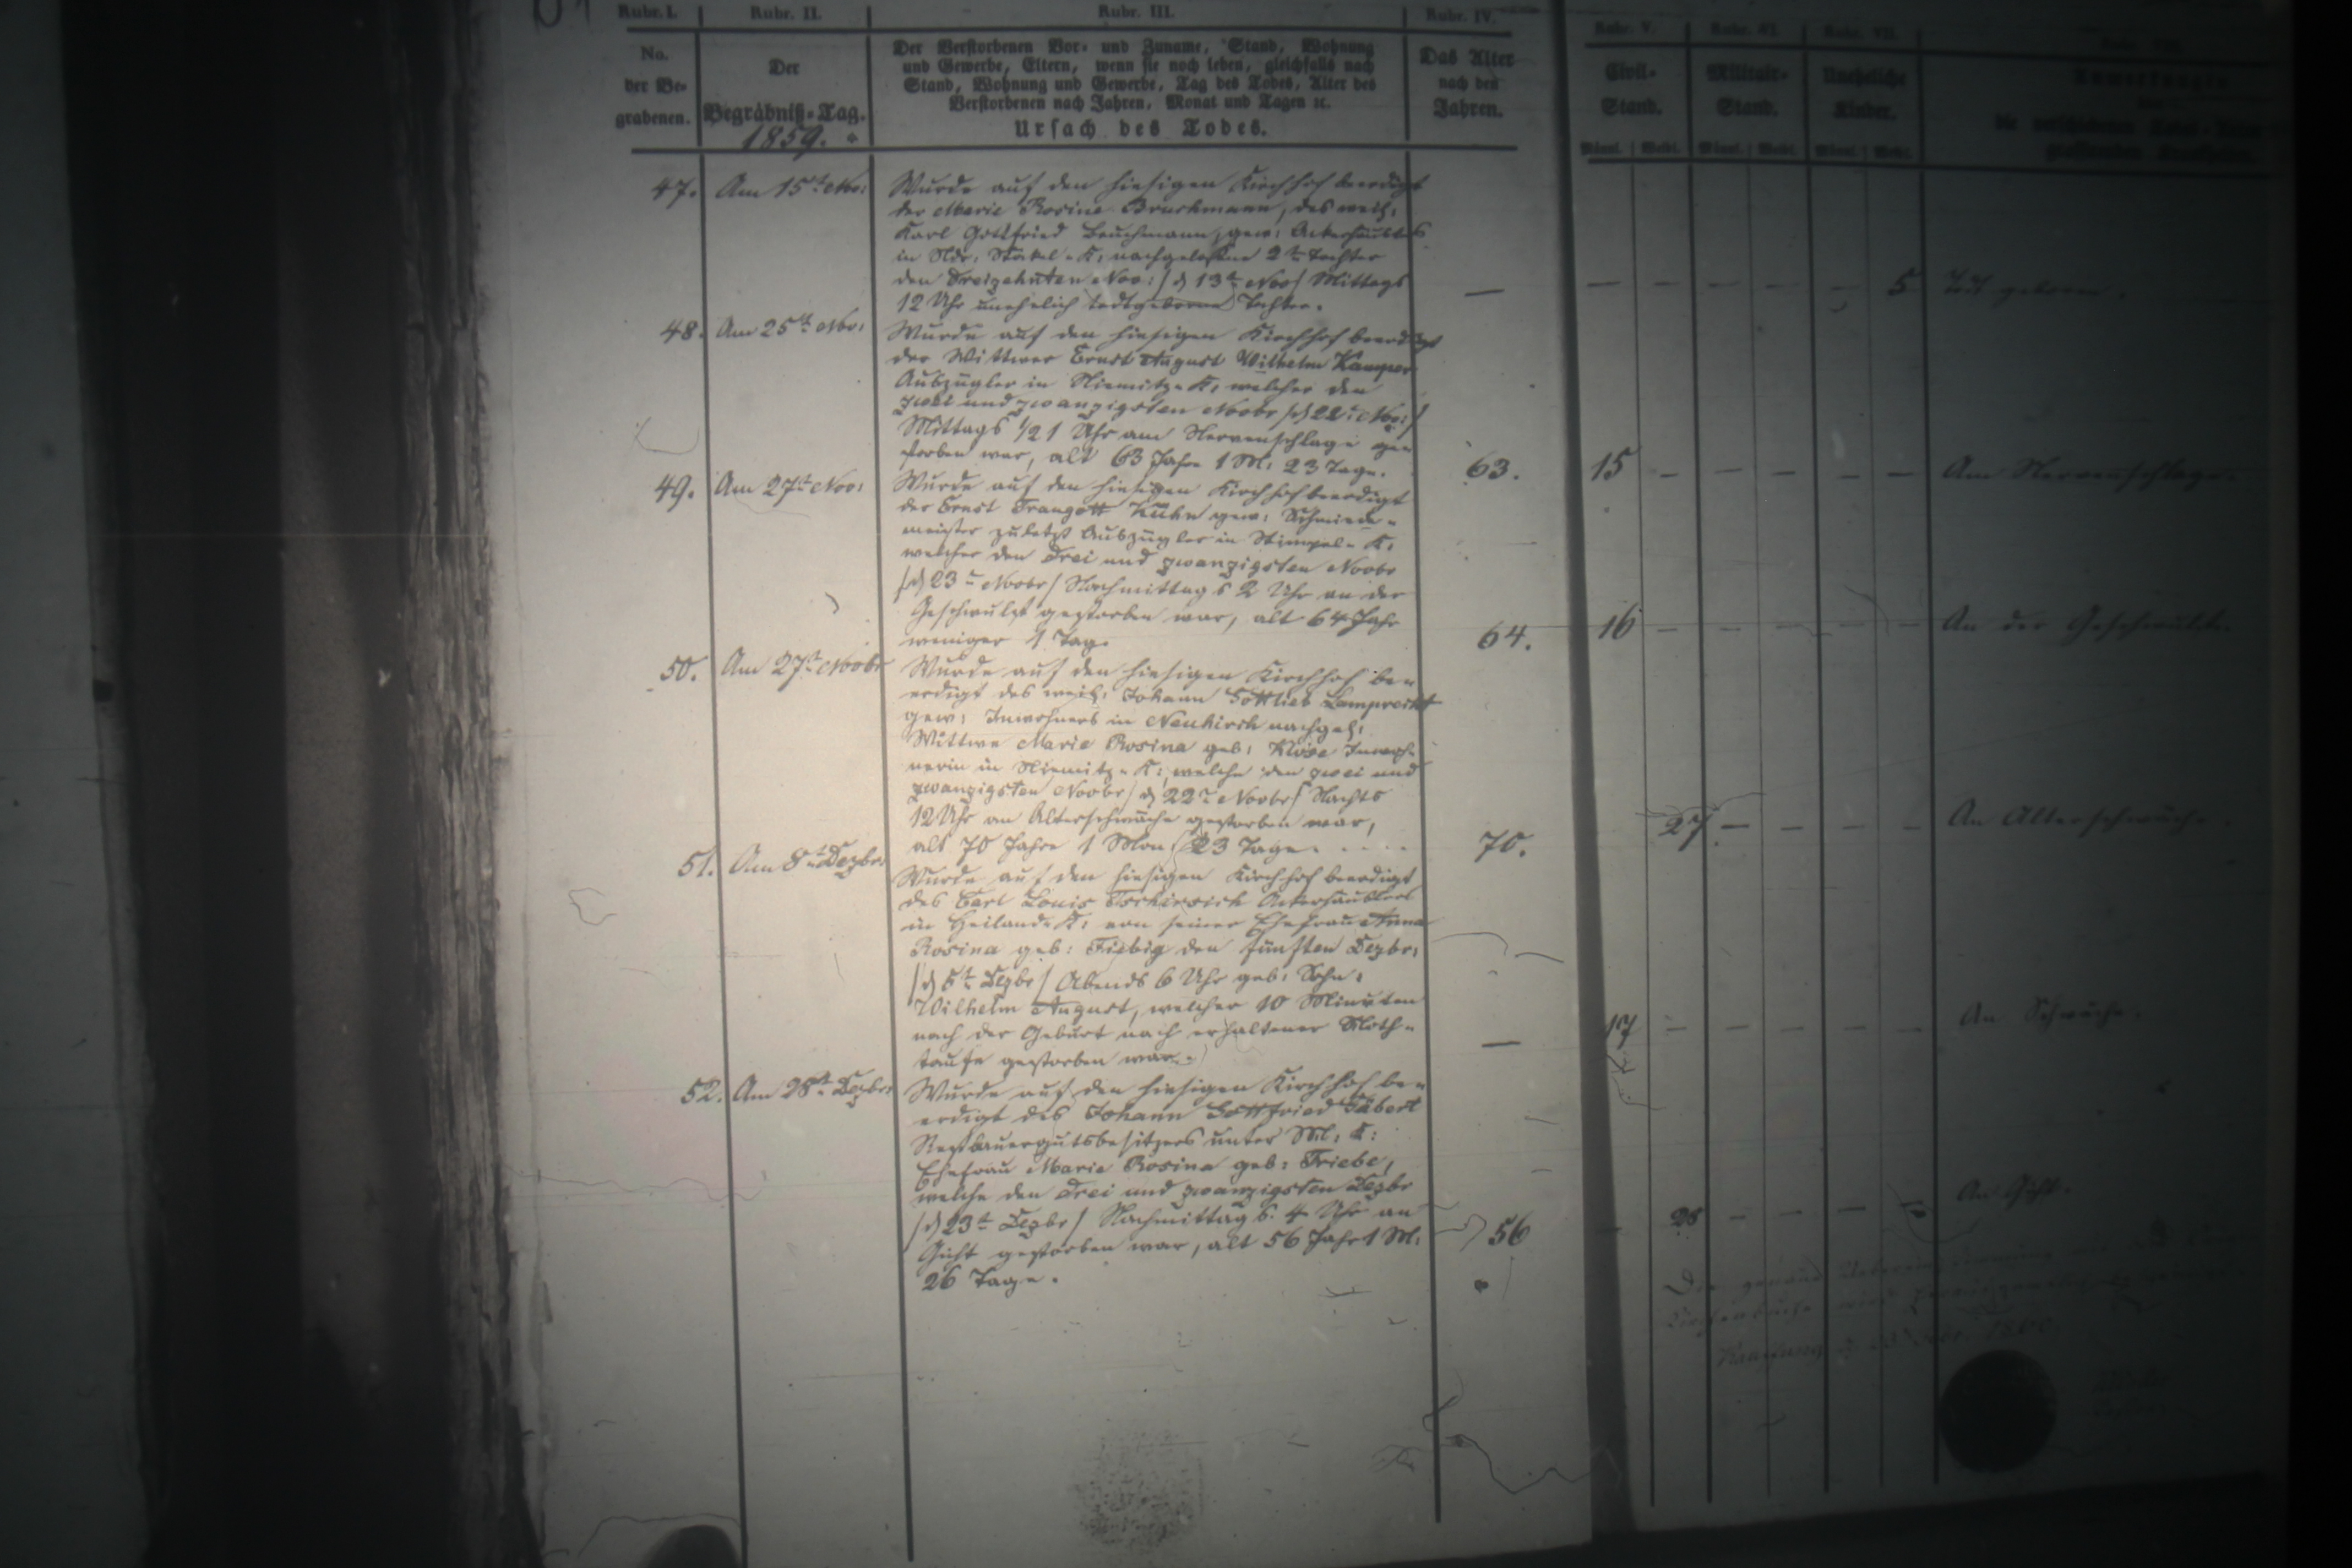 Rubr. I. Rubr. II. Rubr. III. Rubr. IV. Rubr. V. Rubr. VI. Rubr. VII.
No. der Be- grabenen.
Der Begräbniß-Tag. 1859.
Der Verstorbenen Vor- und Zuname, Stand, Wohnung
und Gewerbe, Eltern, wenn sie noch leben, gleichfalls nach
Stand, Wohnung und Gewerbe, Tag des Todes, Alter des
Verstorbenen nach Jahren, Monat und Tagen ꝛc.
Ursach des Todes.
Das Alter nach den Jahren.
Civil- Stand.
Militair- Stand.
Uneheliche Kinder.
Männl. Weibl. Männl. Weibl. Männl. Weibl.
47. Am 15t Nov: Wurde auf den hiesigen Kirchhof beerdigt
der Marie Rosine Bruchmann, des weil:
Karl Gottfried Bruchmann, gew:
in Ndr: K: nachgelassene 2te Tochter
den Dreizehnten Nov: /d 13t Nov/ Mittags
12 Uhr unehelich todtgeborene Tochter. — — — — — — 5 Todt geboren.
48. Am 25t Nov: Wurde auf den hiesigen Kirchhof beerdigt
der Wittwer Ernst August Wilhelm Kamper
Auszügler in Niemitz-K: welcher den
zwei und zwanzigsten Novbr /d 22t Nov:/
Mittags 1/2 1 Uhr am Nervenschlage ge-
storben war, alt 63 Jahre 1 M: 23 Tage. 63. 15 — — — — — Am Nervenschlage.
49. Am 27t Nov: Wurde auf den hiesigen Kirchhof beerdigt
der Ernst Traugott Kühn gew: Schmiede-
meister zuletzt Auszügler in Stimpel-K:
welcher den Drei und zwanzigsten Novbr
/d 23t Novbr/ Nachmittags 2 Uhr an der
Geschwulst gestorben war, alt 64 Jahr
weniger 1 Tag. 64. 16 — — — — — An der Geschwulst.
50. Am 27t Novbr Wurde auf den hiesigen Kirchhof be-
erdigt des weil: Johann Gottlieb Lamprecht
gew: Inwohners in Neukirch nachgel:
Wittwe Marie Rosina geb: Klose Inwoh-
nerin in Niemitz-K:, welche den zwei und
zwanzigsten Novbr /d 22t Novbr/ Nachts
12 Uhr an Altersschwäche gestorben war,
alt 70 Jahre 1 Mon 23 Tage. 70. 27 — — — — An Altersschwäche.
51. Am 8t Dezbr: Wurde auf den hiesigen Kirchhof beerdigt
des Carl Louis Tschirsich
in Heiland-K: von seiner Ehefrau Anna
Rosina geb: Fiebig den fünften Dezbr:
/d 5t Dezbr/ Abends 6 Uhr geb: Sohn:
Wilhelm August, welcher 10 Minuten
nach der Geburt nach erhaltener Noth-
taufe gestorben war. — 17 — — — — — An Schwäche.
52. Am 28t Dezbr: Wurde auf den hiesigen Kirchhof be-
erdigt des Johann Gottfried
Restbauergutsbesitzers unter M: K:
Ehefrau Marie Rosina geb: Friebe,
welche den Drei und zwanzigsten Dezbr
/d 23t Dezbr/ Nachmittags 4 Uhr an
Gicht gestorben war, alt 56 Jahr 1 M:
26 Tage. 56 — 28 — — — — An Gicht.